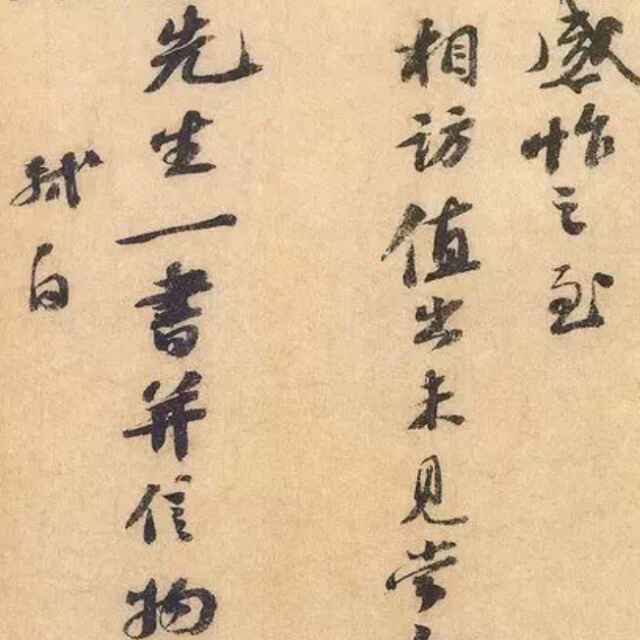 感怍之至
相訪值出未見當
先生一書并信物
軾白